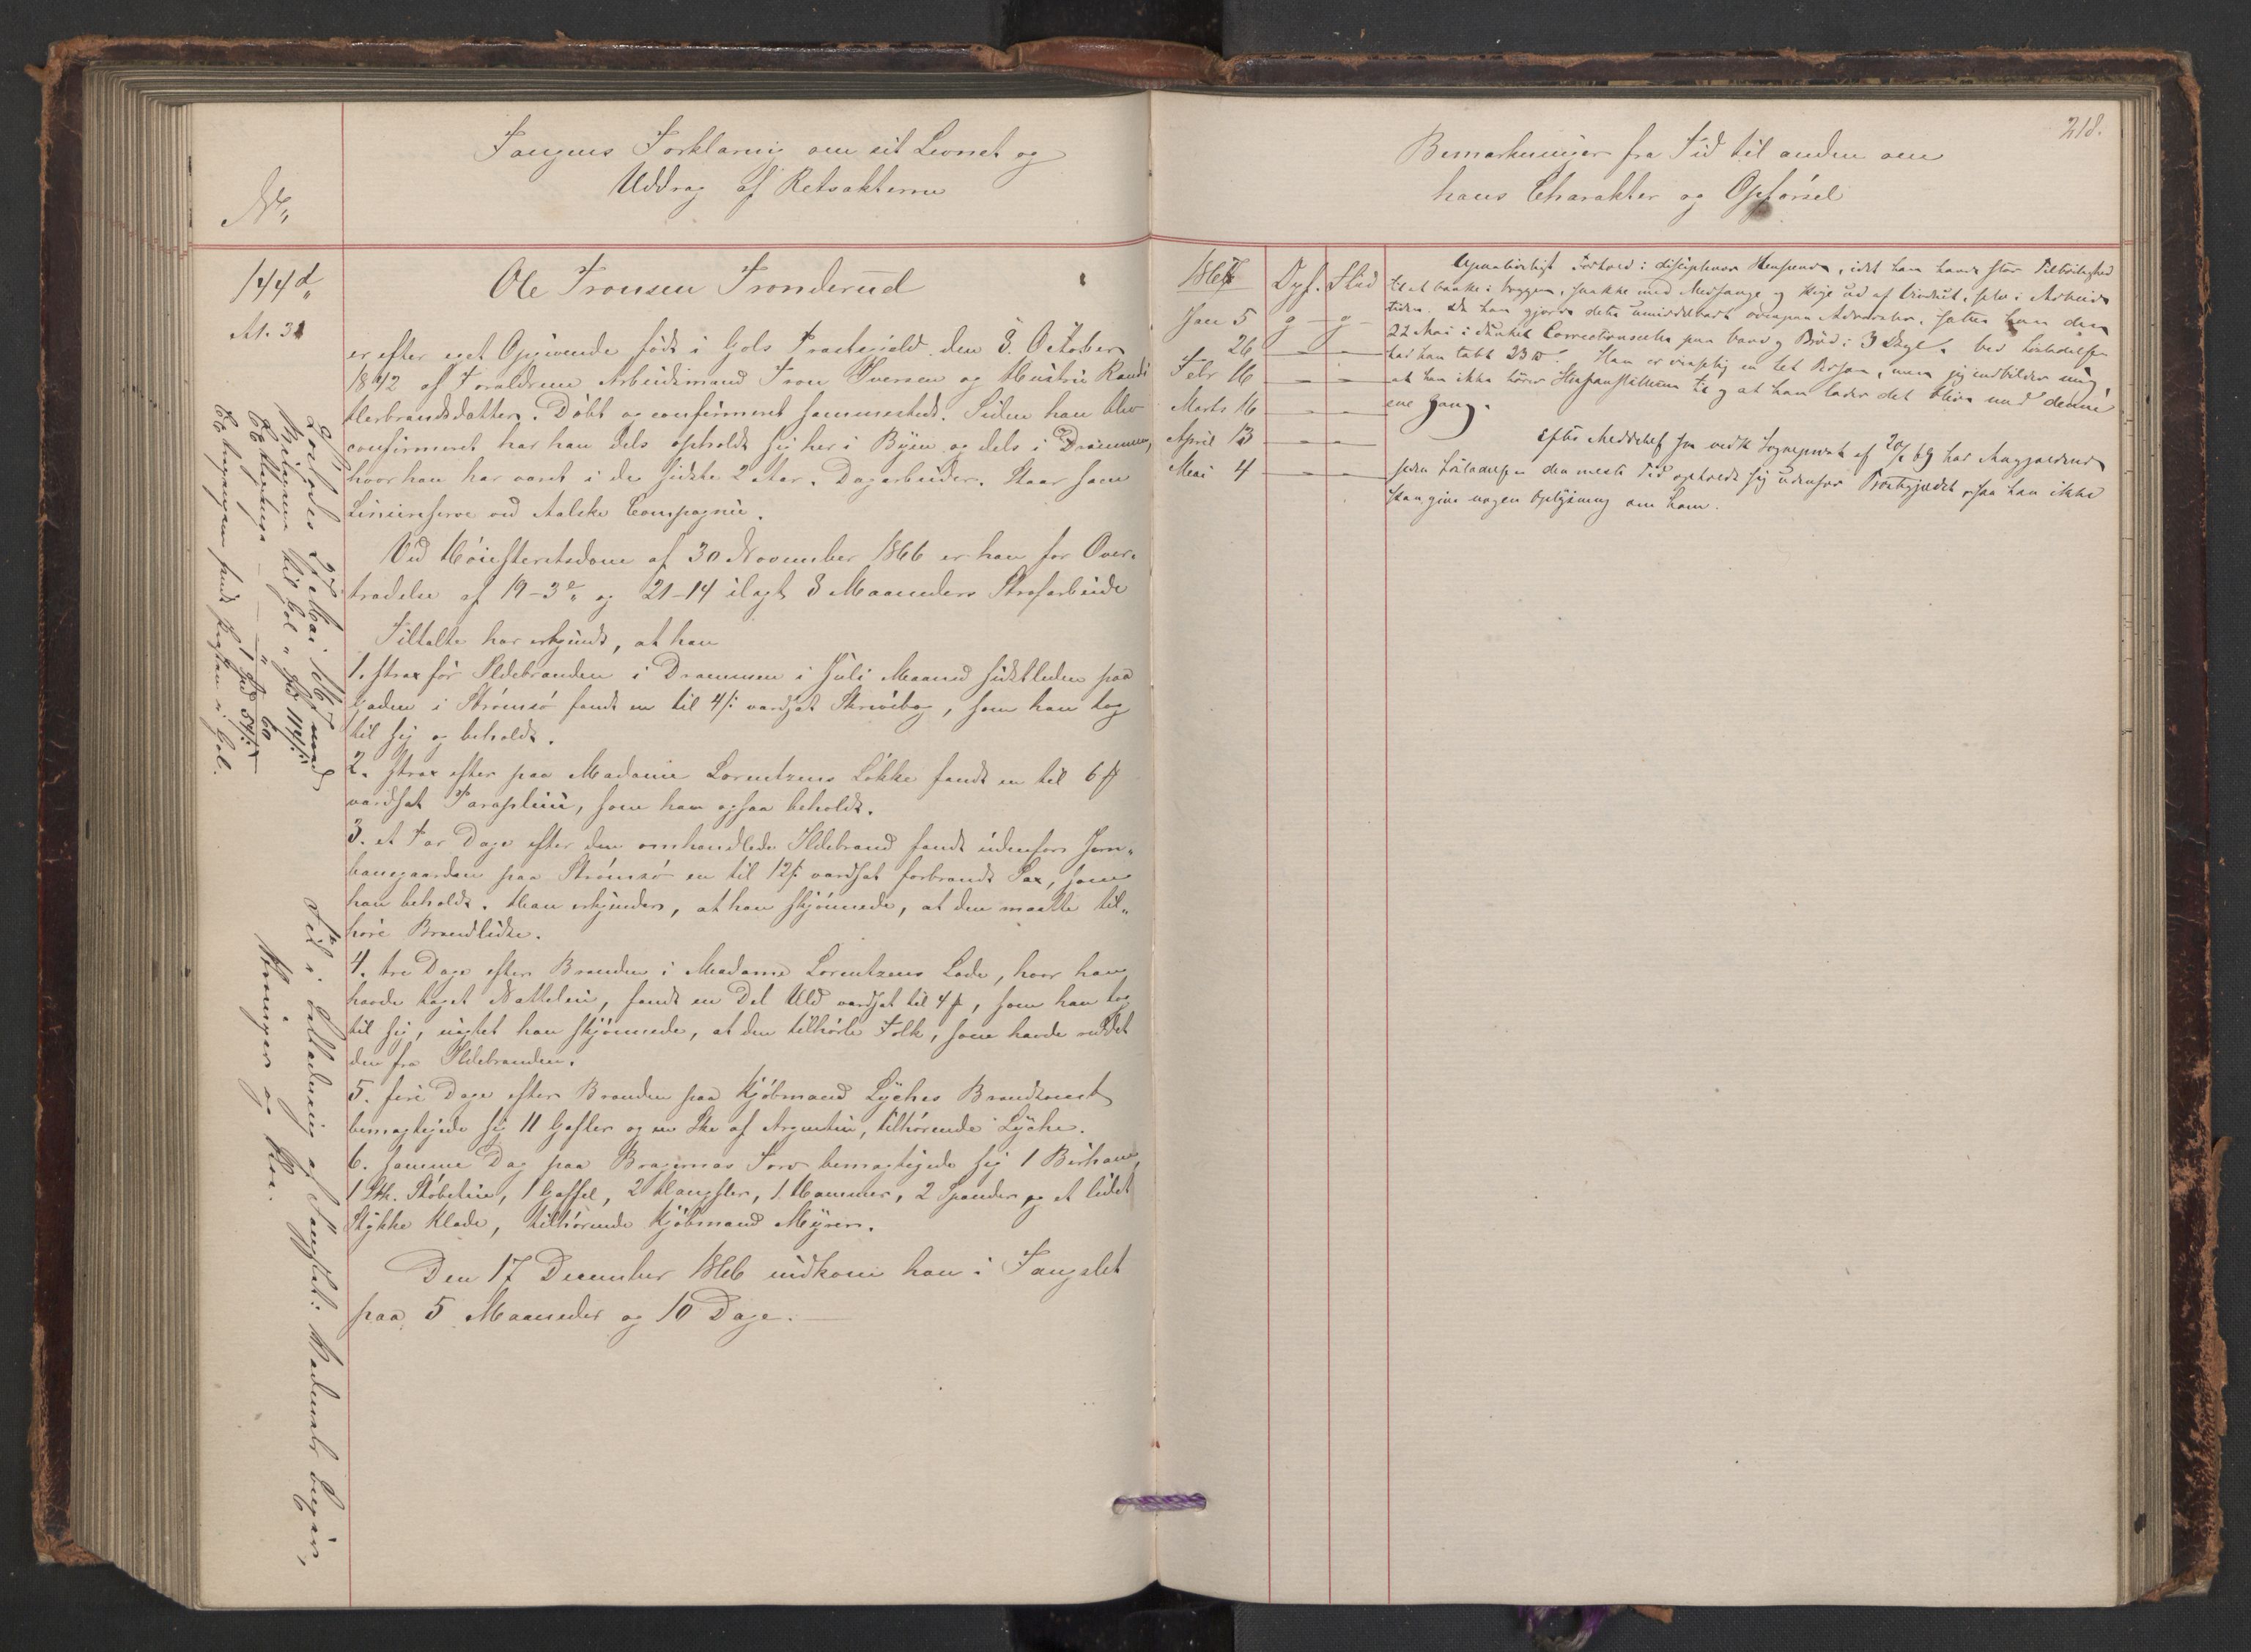 Fangens Forklaring om sit Levnet og
Uddrag af Retsakterne
No
144d
At. 31
Ole Tronsen Tronderud
er efter eget Opgivende født i Gols Præstegjeld den 8. October
1842 af Forældrene Arbeidsmand Tron Iversen og Hustru Randi
Herbrandsdatter. Døbt og confirmeret sammesteds. Siden han blev
confirmeret har han dels opholdt sig her i Byen og dels i Drammen,
hvor han har været i de sidste 2 Aar. Dagarbeider. Staar som
Liniereserve ved Aalske Compagnie.
Ved Høiesteretsdom af 30 November 1866 er han for Over-
trædelse af 19-3 og 21-14 ilagt 8 Maaneders Strafarbeide
Tiltalte har erkjendt, at han
1. strax før Ildebranden i Drammen i Juli Maaned sidstleden paa
Gaden i Strømsø fandt en til 4 /: værdsat Skrivebog, som han tog
til sig og beholdt.
2. strax efter paa Madame Lorentzens Løkke fandt en til 6 /:
værdsat Paraplui, som han ogsaa beholdt.
3. et Par Dage efter den omhandlede Ildebrand fandt udenfor Jern-
banegaarden paa Strømsø en til 12 /: værdsat forbrændt Sax, som
han beholdt. Han erkjender, at han skjønnede, at den maatte til-
høre Brandlidte.
4. tre Dage efter Branden i Madame Lorentzens Lade, hvor han
havde taget Natteleie, fandt en Del Uld værdsat til 4 /:, som han tog
til sig, uagtet han skjønnede, at den tilhørte Folk, som havde reddet
den fra Ildebranden.
5. fire Dage efter Branden paa Kjøbmand Lyches Brandtomt
bemægtigede sig 11 Gafler og en Ske af Argentin, tilhørende Lyche.
6. samme Dag paa Bragernæs Torv bemægtigede sig 1 Bærhane,
1 Stk. Støbeline, 1 Gaffel, 2 Hængsler, 1 Hammer, 2 Spænder og et lidet
Stykke Klæde, tilhørende Kjøbmand Myren.
Den 17 December 1866 indkom han i Fængslet
paa 5 Maaneder og 10 Dage.
Løslades 27 Mai 1867 med
til Gol
sendt Presten i Gol.
Fik i Lathadering af Fængslet: Vadmels Buxer,
Strømper og Sko.
218.
Bemærkninger fra Tid til anden om
hans Charakter og Opførsel
1867 Opf. Flid
Jan 5 g g
26 — —
Febr 16 — —
Marts 16 — —
April 13 — —
Mai 4 — —
Upaaklageligt Forhold i disciplinær Henseende, idet han havde stor Tilbøielighed
til at banke i Væggen, snakke med Medfange og kige ud af Vinduet, selv i Arbeids
tiden. Da han gjorde dette umiddelbart ovenpaa Advarsler, sattes han den
22 Mai i dunkel Correctionscelle paa Vand og Brød i 3 Dage. Ved Løsladelsen
har han tabt 23 . Han er en let Person, men jeg indbilder mig,
at han ikke hører Strafanstalterne til og at han lader det blive med denne
ene Gang.
Efter Meddelelse fra vedk Sognepræst af 20/1 69 har Angjældende
siden Løsladelsen den meste Tid opholdt sig udenfor Præstegjeldet, saa han ikke
kan give nogen Oplysning om ham.